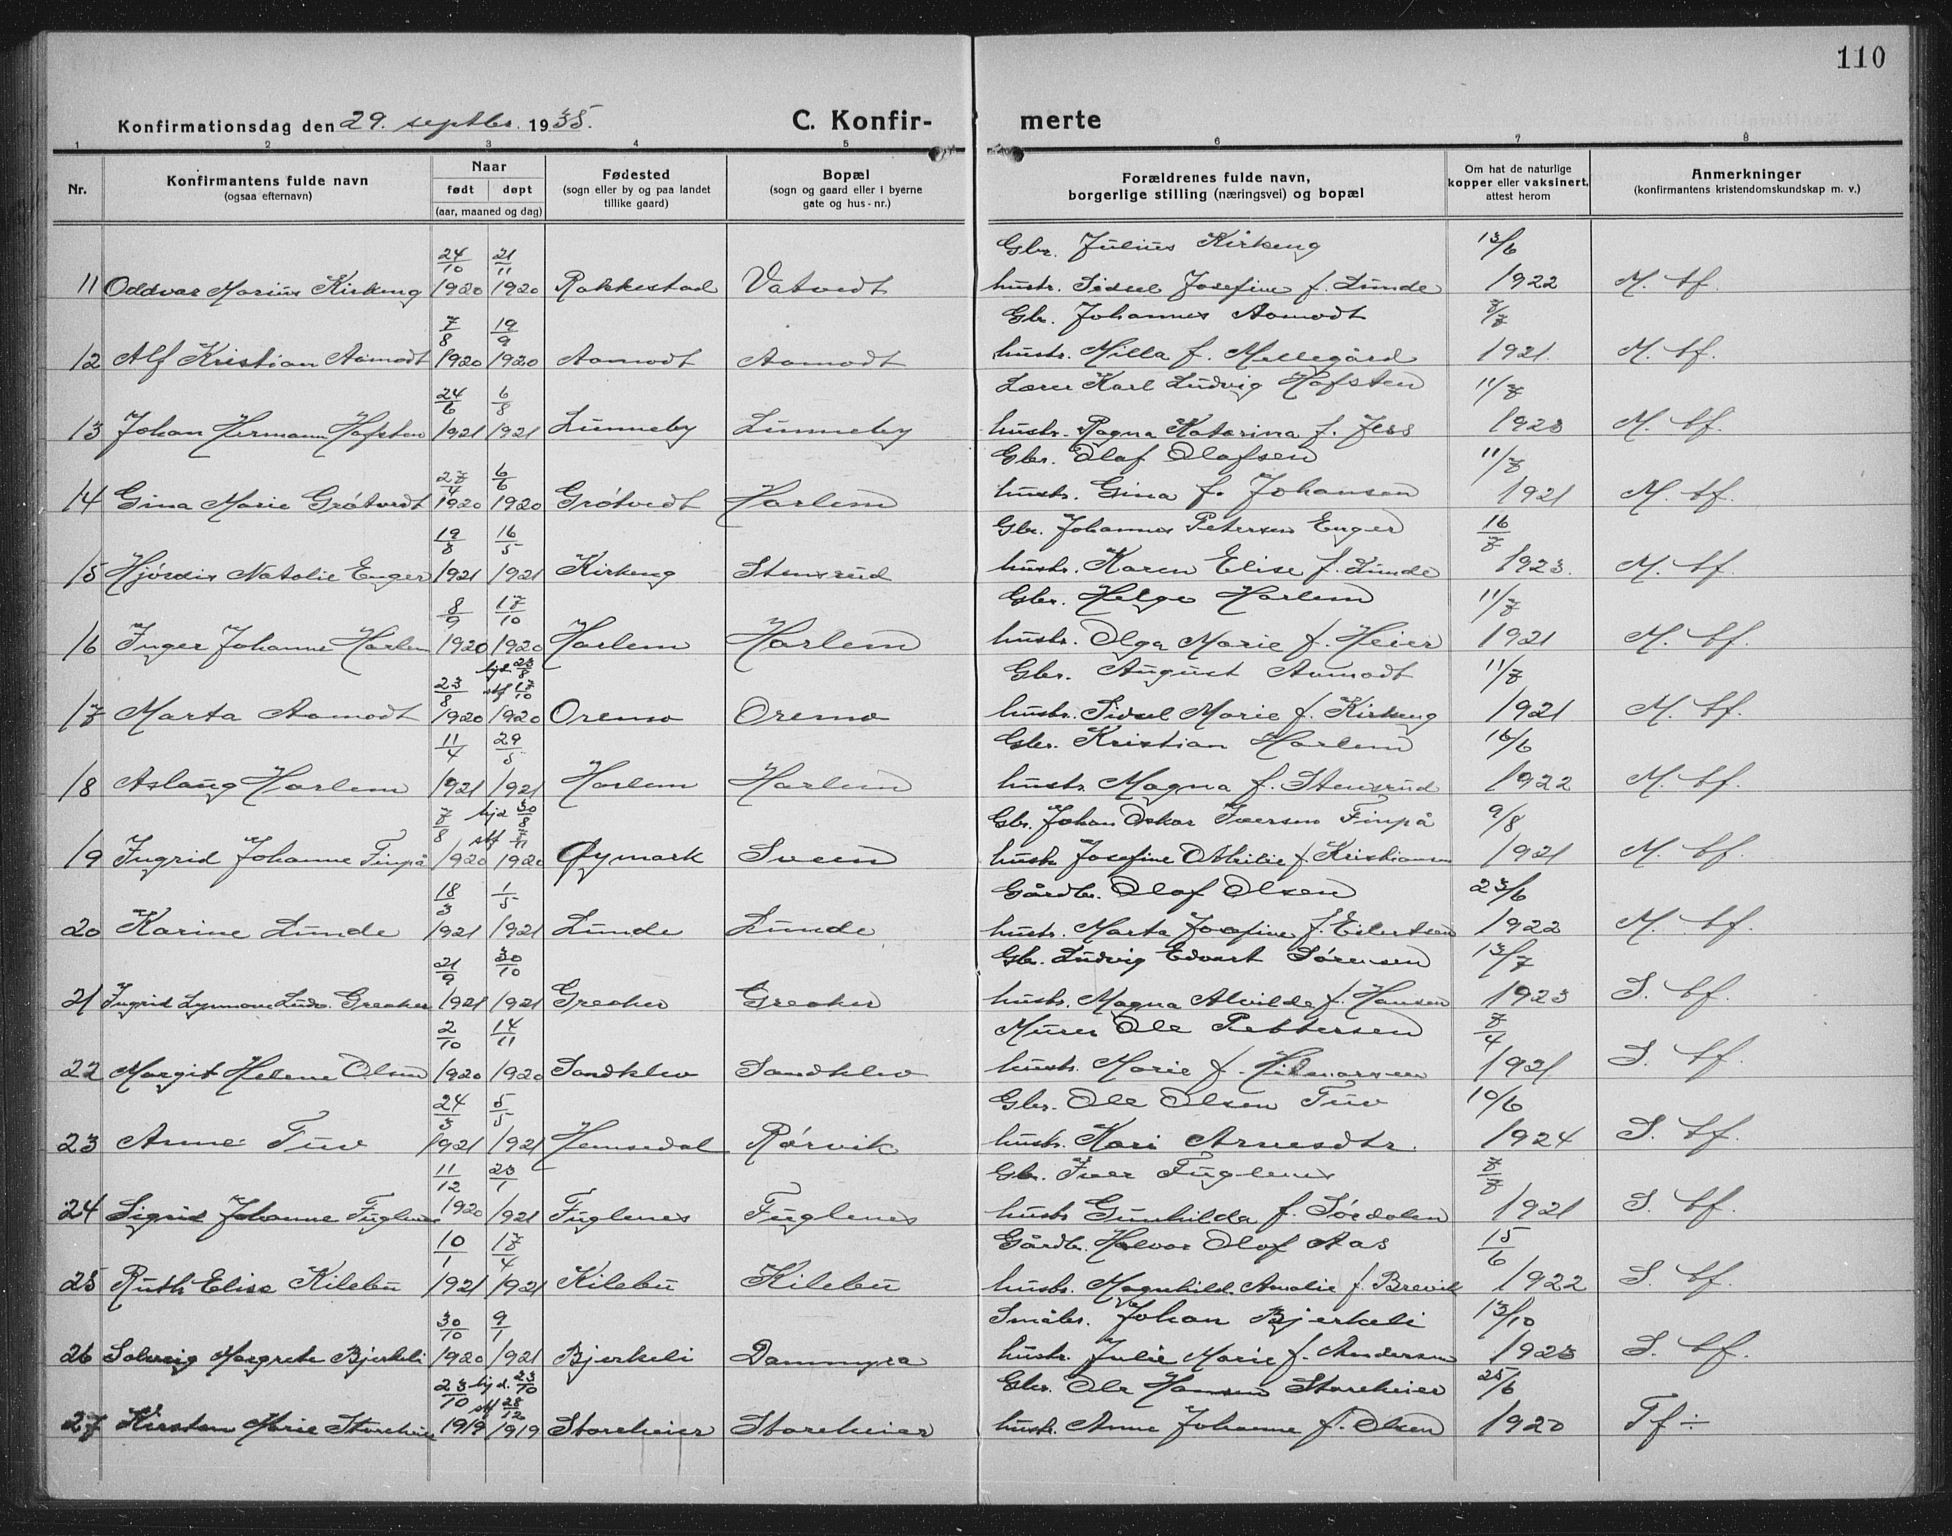 110
Konfirmationsdag den 29. septbr. 1935.
C. Konfir- merte
1 2 3 4 5 6 7 8
Nr.
Konfirmantens fulde navn
(ogsaa efternavn)
Naar
født døpt
(aar, maaned og dag)
Fødested
(sogn eller by og paa landet
tillike gaard)
Bopæl
(sogn og gaard eller i byerne
gate og hus-nr.)
Forældrenes fulde navn,
borgerlige stilling (næringsvei) og bopæl
Om hat de naturlige
kopper eller vaksinert,
attest herom
Anmerkninger
(konfirmantens kristendomskundskap m. v.)
24/10 21/11 Gbr. Julius Kirkeng 13/6
11 Oddvar Marius Kirkeng 1920 1920 Rakkestad Vatvedt hustr. Sidsel Josefine f. Lunde 1922 M. tf.
7/8 19/9 Gbr. Johannes Aamodt 7/7
12 Alf Kristian Aamodt 1920 1920 Aamodt Aamodt hustr. Milla f. Mellegård 1921. M. tf.
24/6 6/8 Lærer Karl Ludvig Hafsten 11/7
13 Johan Hermann Hafsten 1921 1921 Lunneby Lunneby hustr. Ragna Katarina f. Jess 1923 M. tf.
27/4 6/6 Gbr. Olaf Olafsen 11/7
14 Gina Marie Grøtvedt 1920 1920 Grøtvedt Harlem hustr. Gina f. Johansen 1921 M. tf.
19/3 16/5 Gbr. Johannes Petersen Enger 16/7
15 Hjørdis Natalie Enger 1921 1921 Kirkeng Stensrud hustr. Karen Elise f. Lunde 1923. M. tf.
8/9 17/10 Gbr. Helge Harlem 11/7
16 Inger Johanne Harlem 1920 1920 Harlem Harlem hustr. Olga Marie f. Heier 1921 M. tf.
23/8 hjd. 23/8 stf 17/10 Gbr. August Aamodt 11/7
17 Marta Aamodt 1920 1920 Oremo Oremo hustr. Sidsel Marie f. Kirkeng 1921 M. tf.
11/4 29/5 Gbr. Kristian Harlem 16/6
18 Aslaug Harlem 1921 1921 Harlem Harlem hustr. Magna f. Stensrud 1922 M. tf.
7/8 hjd 30/8 stf 7/11 Gbr. Johan Oskar Iversen Finpå 9/8
19 Ingrid Johanne Finpå 1920 1920 Øymark Sveen hustr. Josefine Othilie f. Kristiansen 1921 M. tf
18/3 1/5 Gårdbr. Olaf Olsen 23/6
20 Karine Lunde 1921 1921 Lunde Lunde hustr. Marta Josefine f. Eilertsen 1922 M. tf.
21/9 30/10 Gbr. Ludvig Edvart Sørensen 13/7
21 Ingrid Ludv. Greaker 1921 1921 Greaker Greaker hustr. Magna Alvilde f. Hansen 1923 S. tf.
2/10 14/11 Murer Ole Pettersen 7/4
22 Margit Helene Olsen 1920 1920 Sandklev Sandklev hustr. Marie f. Hilmarsen 1921 S. tf.
24/3 5/5 Gbr. Ole Olsen Tuv 10/6
23 Anne Tuv 1921 1921 Hemsedal Rørvik hustr. Kari Arnesdtr. 1924 S. tf.
11/12 23/1 Gbr. Iver Fuglenes 7/7
24 Sigrid Johanne Fuglenes 1920 1921 Fuglenes Fuglenes hustr Gunhilda f. Sørdalen 1921 S. tf.
10/1 17/4 Gårdbr. Halvor Olof Aas 15/6
25 Ruth Elise Kilebu 1921 1921 Kilebu Kilebu hustr. Magnhild Amalie f. Brevik 1922 S. tf.
30/10 9/1 Småbr. Johan Bjerkeli 13/10
26 Solveig Margrete Bjerkeli 1920 1921 Bjerkeli Dammyra hustr. Julie Marie f. Andersen 1923 S. tf.
23/10 hjd. 23/10 stf 28/12 Gbr. Ole Hansen Storeheier 25/6
27 Kirsten Marie Storeheier 1919 1919 Storeheier Storeheier hustr. Anne Johanne f. Olsen 1920 Tf ÷